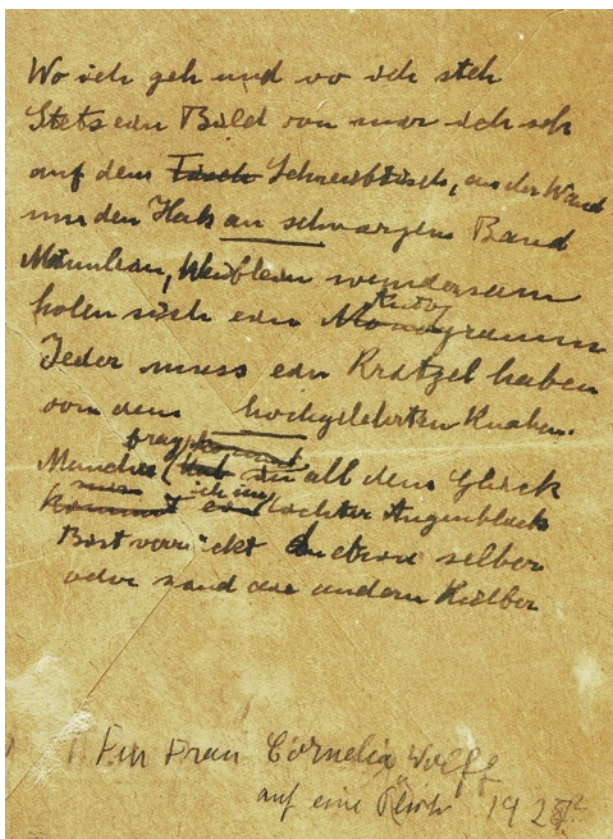 Wo ich geh und wo ich steh
Stets ein Bild von mir ich seh
auf dem Tisch Schreibtisch, an der Wand
um den Hals an schwarzem Band
Männlein, Weiblein wundersam
holen sich ein Autogramm
Jeder muss ein Kratzel haben
von dem hochgelehrten Knaben.
frag kommt
in all dem Glück
ich im lichten Augenblick
Bist verrückt du etwa selber
oder sind die andern Kälber
Für Frau Cornelia Wolff
auf eine 1927